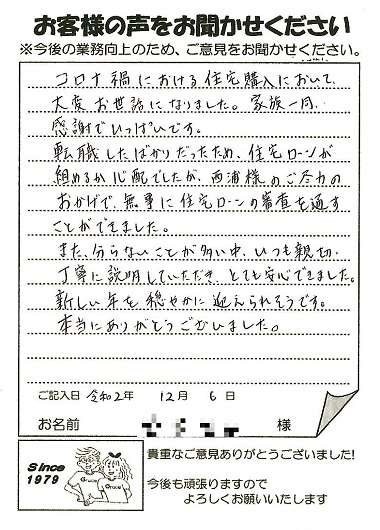 お客様の声をお聞かせください
※今後の業務向上のため、ご意見をお聞かせください。
コロナ禍における住宅購入において、
大変お世話になりました。家族一同、
感謝でいっぱいです。
転職したばかりだったため、住宅ローンが
組めるか心配でしたが、西浦様のご尽力の
おかげで、無事に住宅ローンの審査を通す
ことができました。
また、分らないことが多い中、いつも親切、
丁寧に説明していただき、とても安心できました。
新しい年を穏やかに迎えられそうです。
本当にありがとうございました。
ご記入日 令和2年 12月 6日
お名前 様
Since
1979
貴重なご意見ありがとうございました!
今後も頑張りますので
よろしくお願いいたします